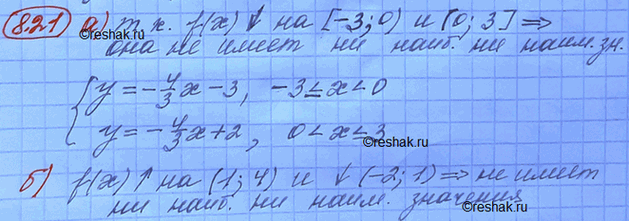 8.21 а) т.к. f(x) ↓ на [-3; 0) и (0; 3] ⇒
она не имет ни наиб. ни наим. зн.
{ y = -4/3x - 3, -3 ≤ x < 0
y = -4/3x + 2, 0 < x ≤ 3
©reshak.ru
б) f(x) ↑ на (1; 4) и ↓ (-2; 1) ⇒ не имет
ни наиб. ни наим. значения
©reshak.ru